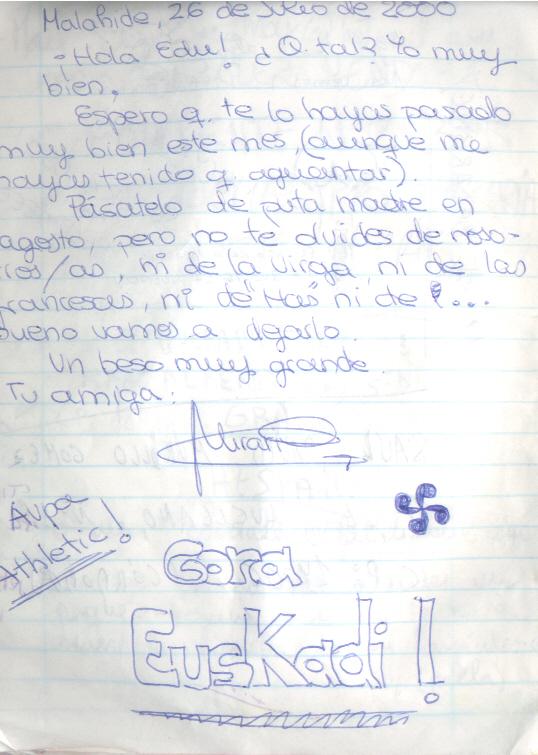 Malahide, 26 de Julio de 2000
¡Hola Edu! ¿Q. tal? Yo muy
bien.
Espero q. te lo hayas pasado
muy bien este mes, (aunque me
hayas tenido q. aguantar).
Pásatelo de puta madre en
agosto, pero no te olvides de noso-
tros/as, ni de la virga, ni de las
francesas, ni de "Mas" ni de ! ...
Bueno vamos a dejarlo.
Un beso muy grande.
Tu amiga:
Aupa
Athletic!
Gora
Euskadi!